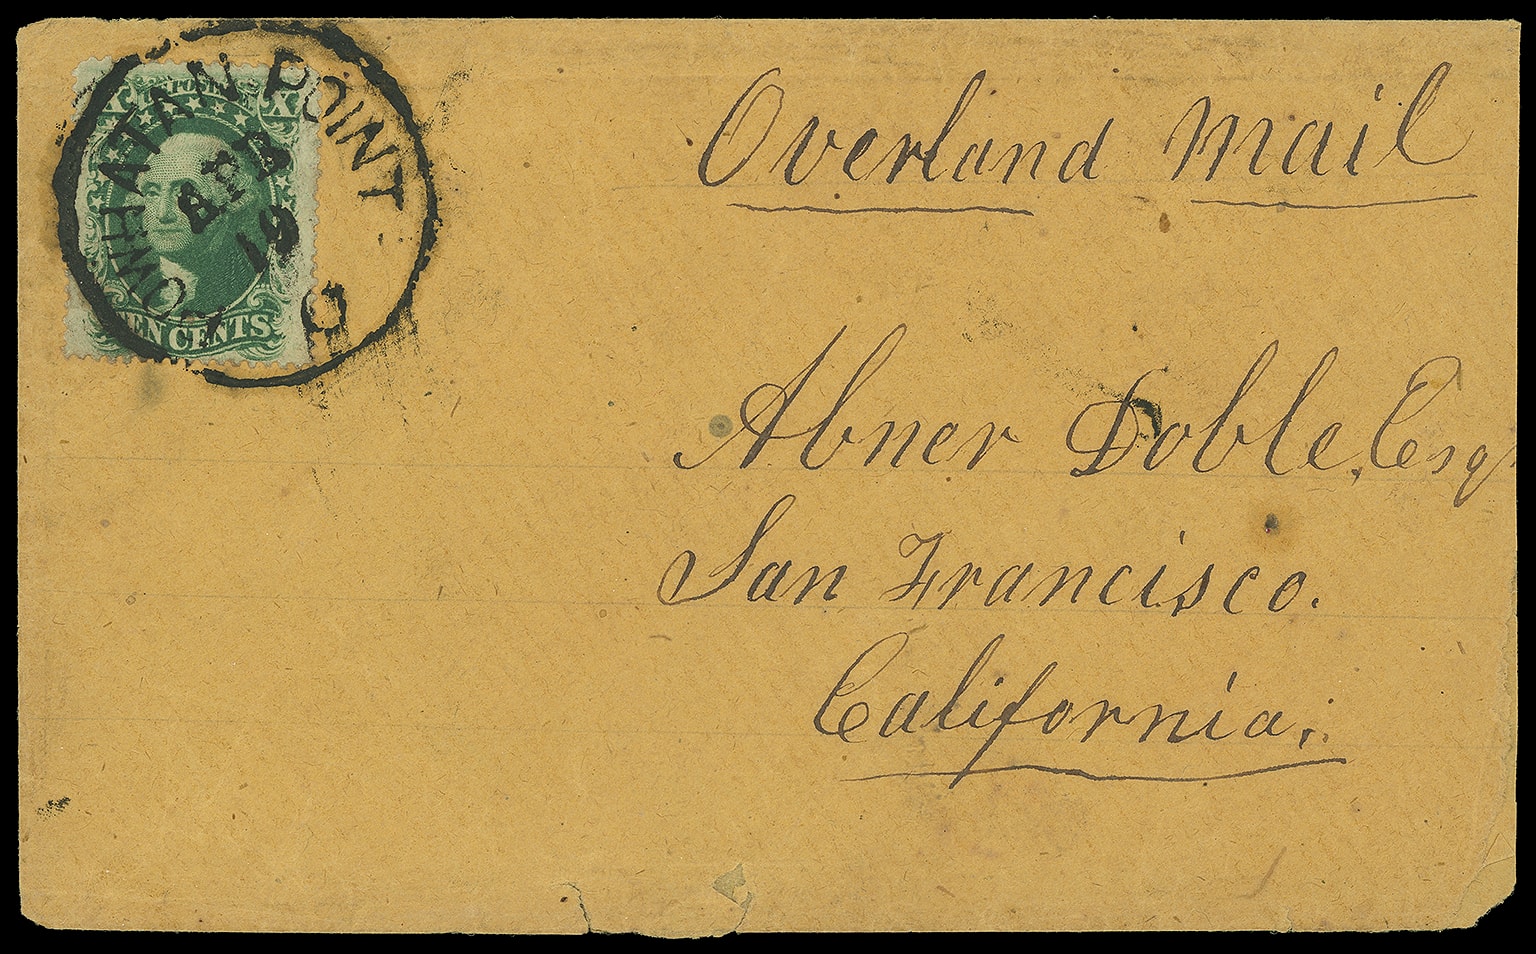 X U.S. POSTAGE X
POWHATAN POINT
APR
19
O
TEN CENTS
Overland Mail
Abner Doble, Esqr
San Francisco.
California.